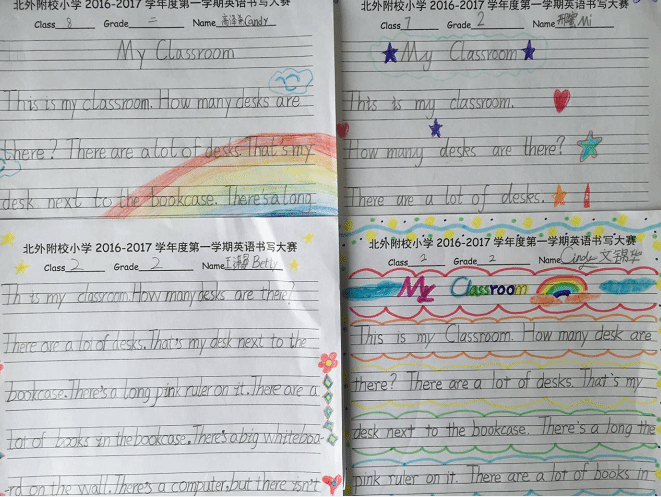 北外附校小学 2016-2017 学年度第一学期英语书写大赛
Class 8 Grade 二 Name Candy
My Classroom
This is my classroom. How many desks are
there? There are a lot of desks. That's my
desk next to the bookcase. There's a long
北外附校小学 2016-2017 学年度第一学期英语书写大赛
Class 7 Grade 2 Name Mi
My Classroom
This is my classroom.
How many desks are there?
There are a lot of desks.
北外附校小学 2016-2017 学年度第一学期英语书写大赛
Class 2 Grade 2 Name Betty
Th is is my classroom. How many desks are there?
There are a lot of desks. That's my desk next to the
bookcase. There's a long pink ruler on it. There are a
lot of books in the bookcase. There's a big whiteboa-
rd on the wall. There's a computer, but there isn't
北外附校小学 2016-2017 学年度第一学期英语书写大赛
Class 2 Grade 2 Name Cindy 文锦华
My Classroom
This is my Classroom. How many desk are
there? There are a lot of desks. That's my
desk next to the bookcase. There's a long the
pink ruler on it. There are a lot of books in